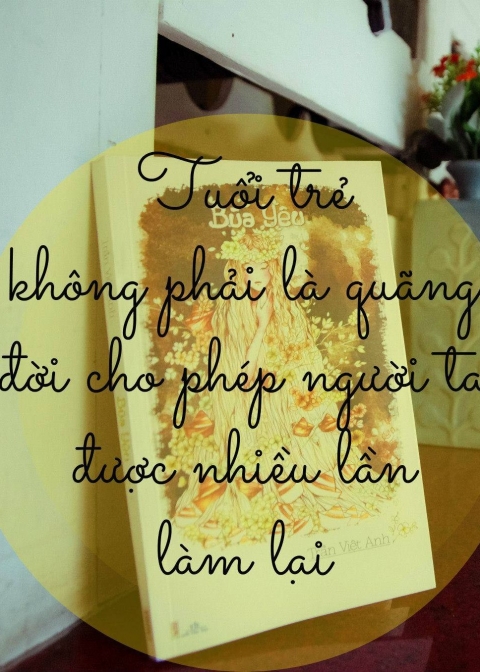 Tuổi trẻ
Bùa Yêu
không phải là quãng
đời cho phép người ta
được nhiều lần
làm lại
Trần Việt Anh